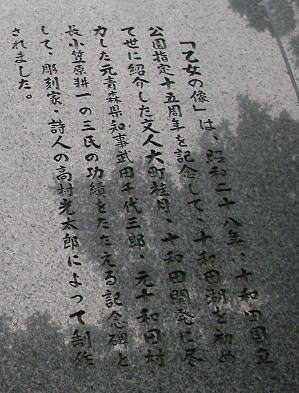 「乙女の像」は、昭和二十八年、十和田国立
公園指定十五周年を記念して、十和田湖を初め
て世に紹介した文人大町桂月、十和田開発に尽
力した元青森県知事武田千代三郎、元十和田村
長小笠原耕一の三氏の功績をたたえる記念碑と
して、彫刻家、詩人の高村光太郎によって制作
されました。